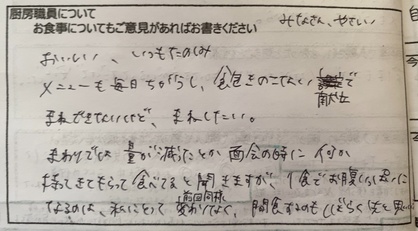 厨房職員について
お食事についてもご意見があればお書きください
みなさん、やさしい
おいしい、いつもたのしみ
メニューも毎日ちがうし、
まねできてないけど、まねしたい。
まわりでは量が減ったとか面会の時に何か
持ってきてもらって食べてると聞きますが、1食でお腹いっぱいに
なるのは、私にとって
前回同様
変わりなく、間食するのも